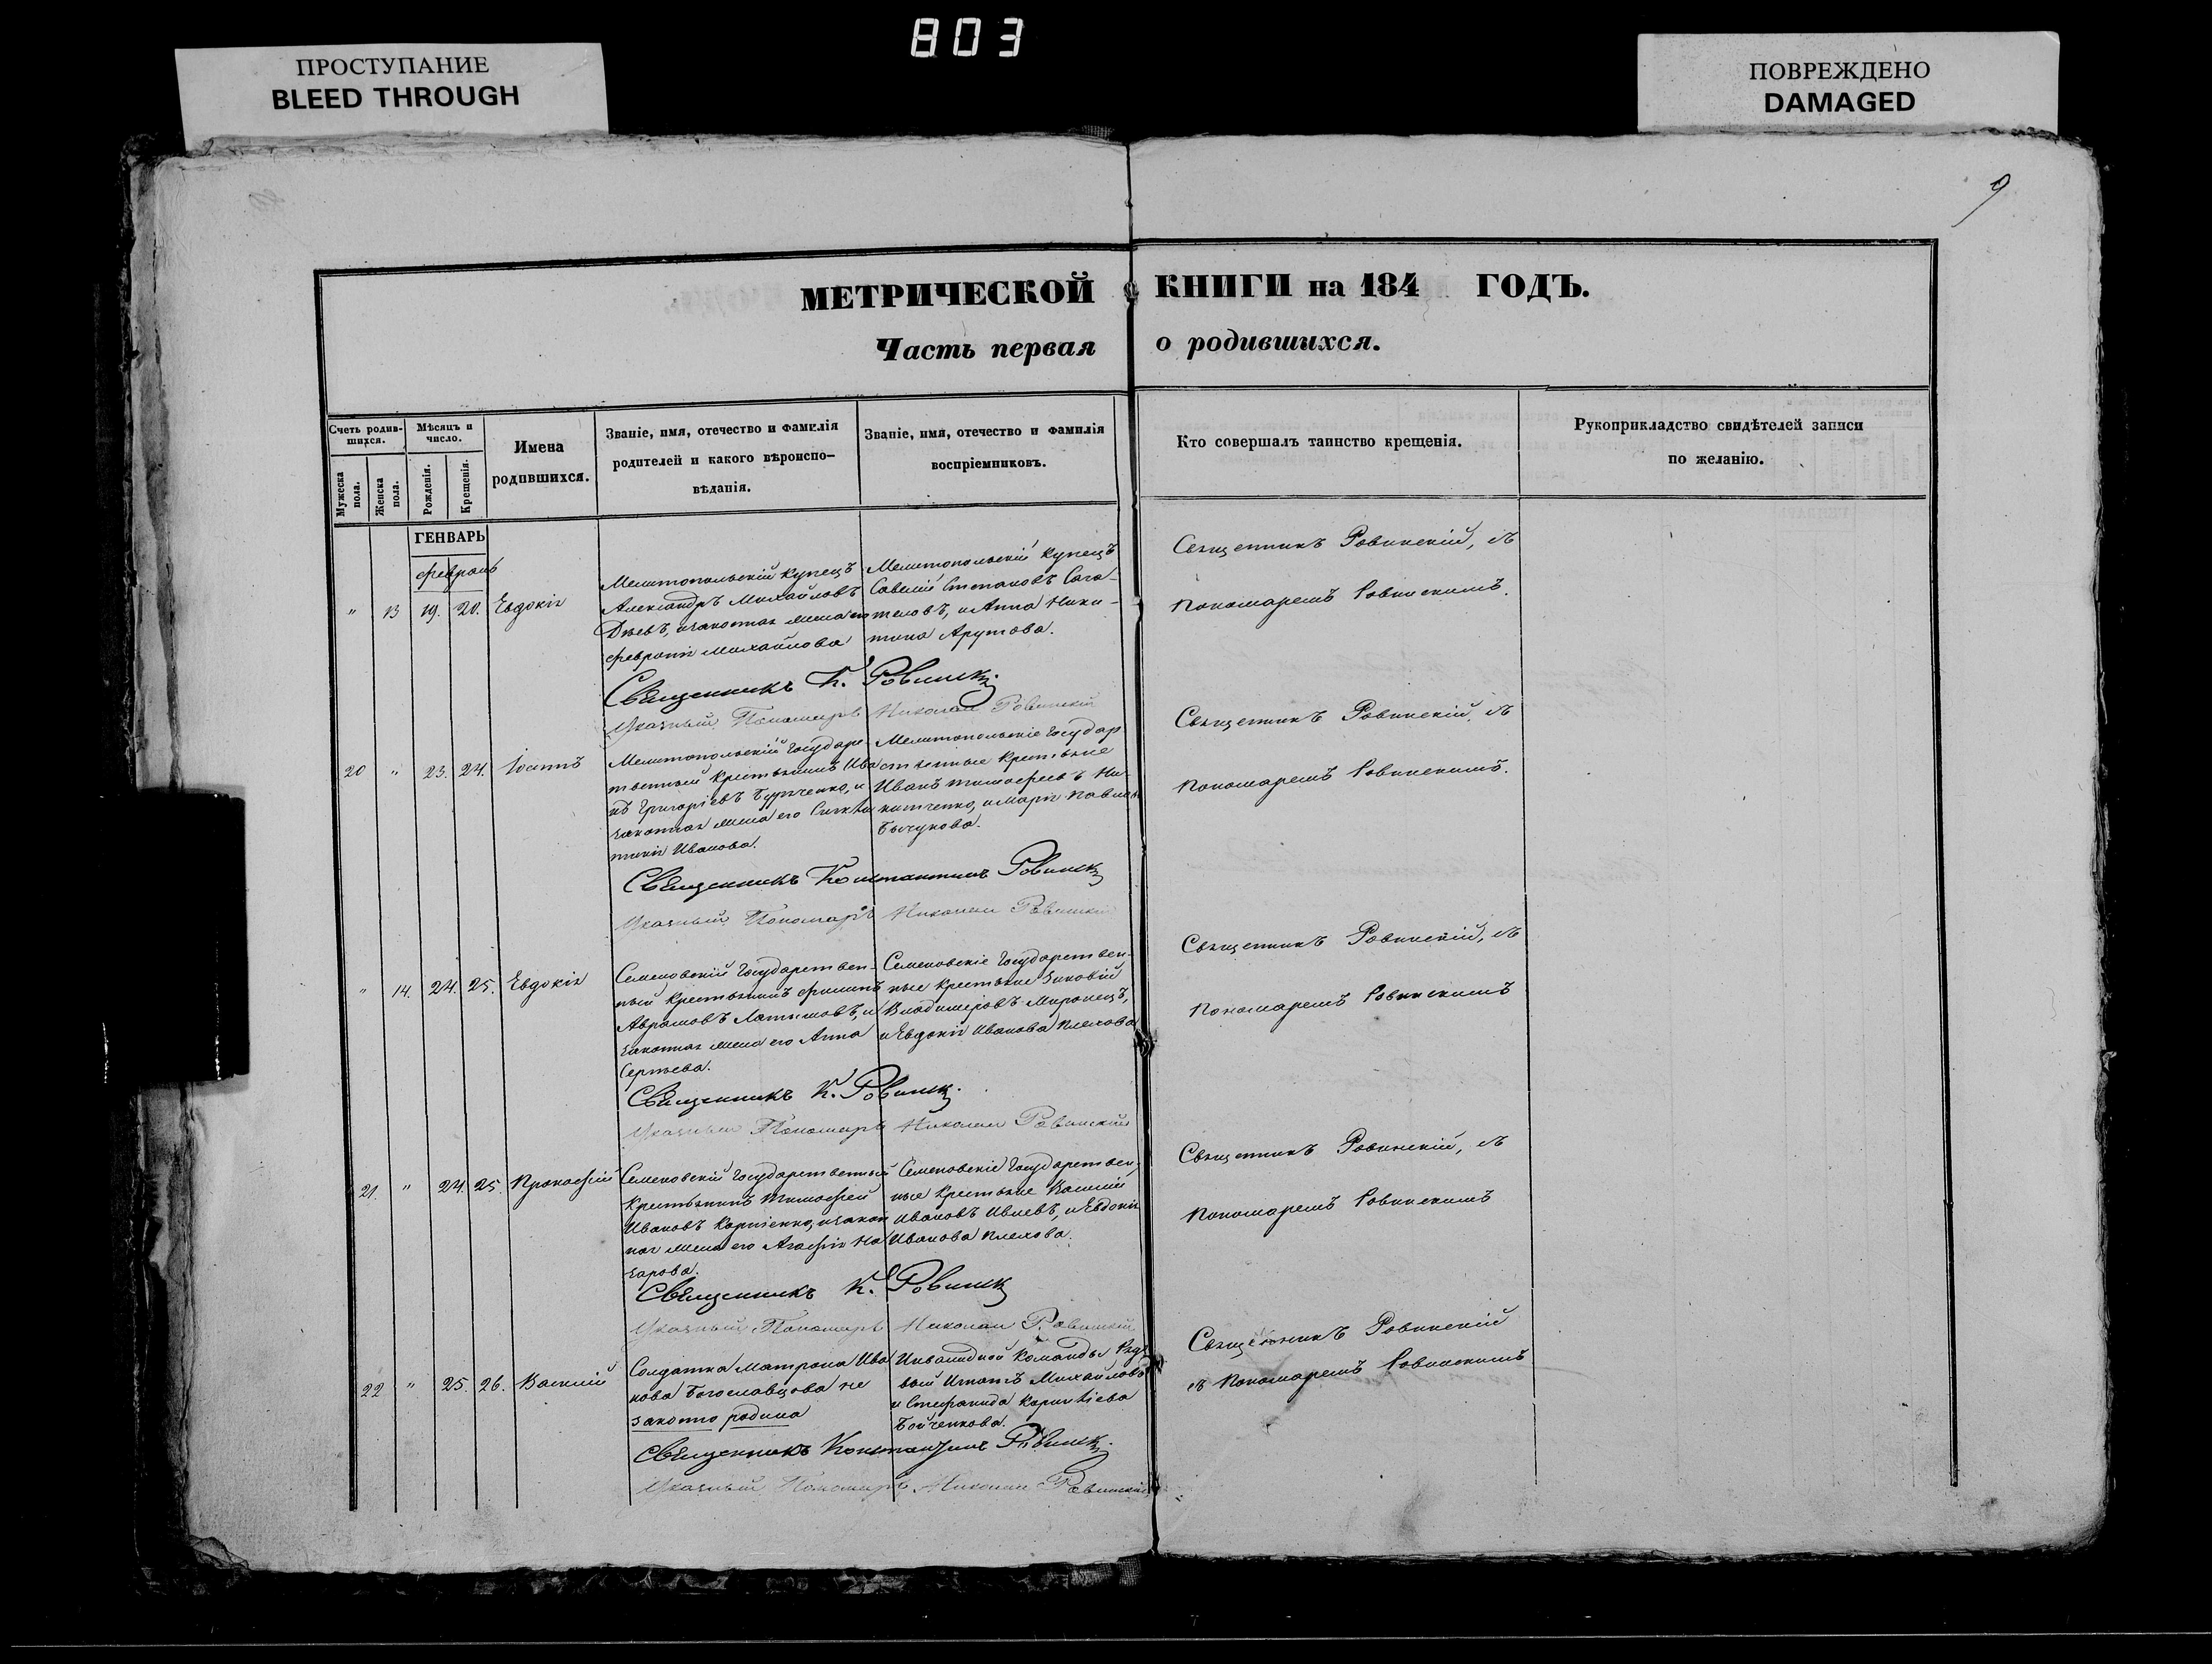 803
ПРОСТУПАНИЕ
BLEED THROUGH
ПОВРЕЖДЕНО
DAMAGED
9
МЕТРИЧЕСКОЙ КНИГИ на 184 ГОДЪ.
Часть первая о родившихся.
Счетъ родив-
шихся.
Мужеска
пола.
Женска
пола.
Мѣсяцъ и
число.
Рожденія.
Крещенія.
Имена
родившихся.
Званіе, имя, отечество и фамилія
родителей и какого вѣроиспо-
вѣданія.
Званіе, имя, отечество и фамилія
воспріемниковъ.
Кто совершалъ таинство крещенія.
Рукоприкладство свидѣтелей записи
по желанію.
ГЕНВАРЬ
Февраль
" 13 19. 20. Евдокія
Мелитопольскій купецъ
Александръ Михайловъ
законная жена его
Февронія Михайлова
Мелитопольскій купецъ
Савелій Степановъ Сага-
теловъ, и Анна Ники-
тина Арутова.
Священникъ Ровинскій, съ
Пономаремъ Ровинскимъ.
Священникъ К. Ровинскій
Указный Пономарь Николай Ровинскій
20 " 23. 24. Іоаннъ
Мелитопольскій Государс-
твенный крестьянинъ Ива
нъ Григорьевъ и
законная жена его Синкли
тикія Иванова.
Мелитопольскіе Государ
ственные крестьяне
Иванъ Тимофеевъ Ни-
китченко, и Марія Павлова
Бычукова.
Священникъ Ровинскій, съ
Пономаремъ Ровинскимъ.
Священникъ Константинъ Ровинскій
Указный Пономарь Николай Ровинскій
" 14. 24. 25. Евдокія
Семеновскій Государствен-
ный крестьянинъ Филиппъ
Аврамовъ Латышовъ, и
законная жена его Анна
Сергѣева.
Семеновскіе Государствен-
ные крестьяне Зиновій
Владимеровъ Миронецъ,
и Евдокія Иванова Плехова
Священникъ Ровинскій, съ
Пономаремъ Ровинскимъ
Священникъ К. Ровинскій
Указный Пономарь Николай Ровинскій
21. " 24. 25. Прокофій
Семеновскій Государственный
крестьянинъ Тимофей
Ивановъ Карпенко, и закон
ная жена его Агафія На
зарова.
Семеновскіе Государствен-
ные крестьяне Василій
Ивановъ Ивлевъ, и Евдокія
Иванова Плехова.
Священникъ Ровинскій, съ
Пономаремъ Ровинскимъ
Священникъ К. Ровинскій
Указный Пономарь Николай Ровинскій
22 " 25. 26. Василій
Солдатка Матрона Ива
нова Богославцова не
законно родила
Инвалидной команды Рядо
вый Игнатъ Михайловъ
и Стефанида
Бойченкова.
Священникъ Ровинскій
съ Пономаремъ Ровинскимъ
Священникъ Константинъ Ровинскій
Указный Пономарь Николай Ровинскій